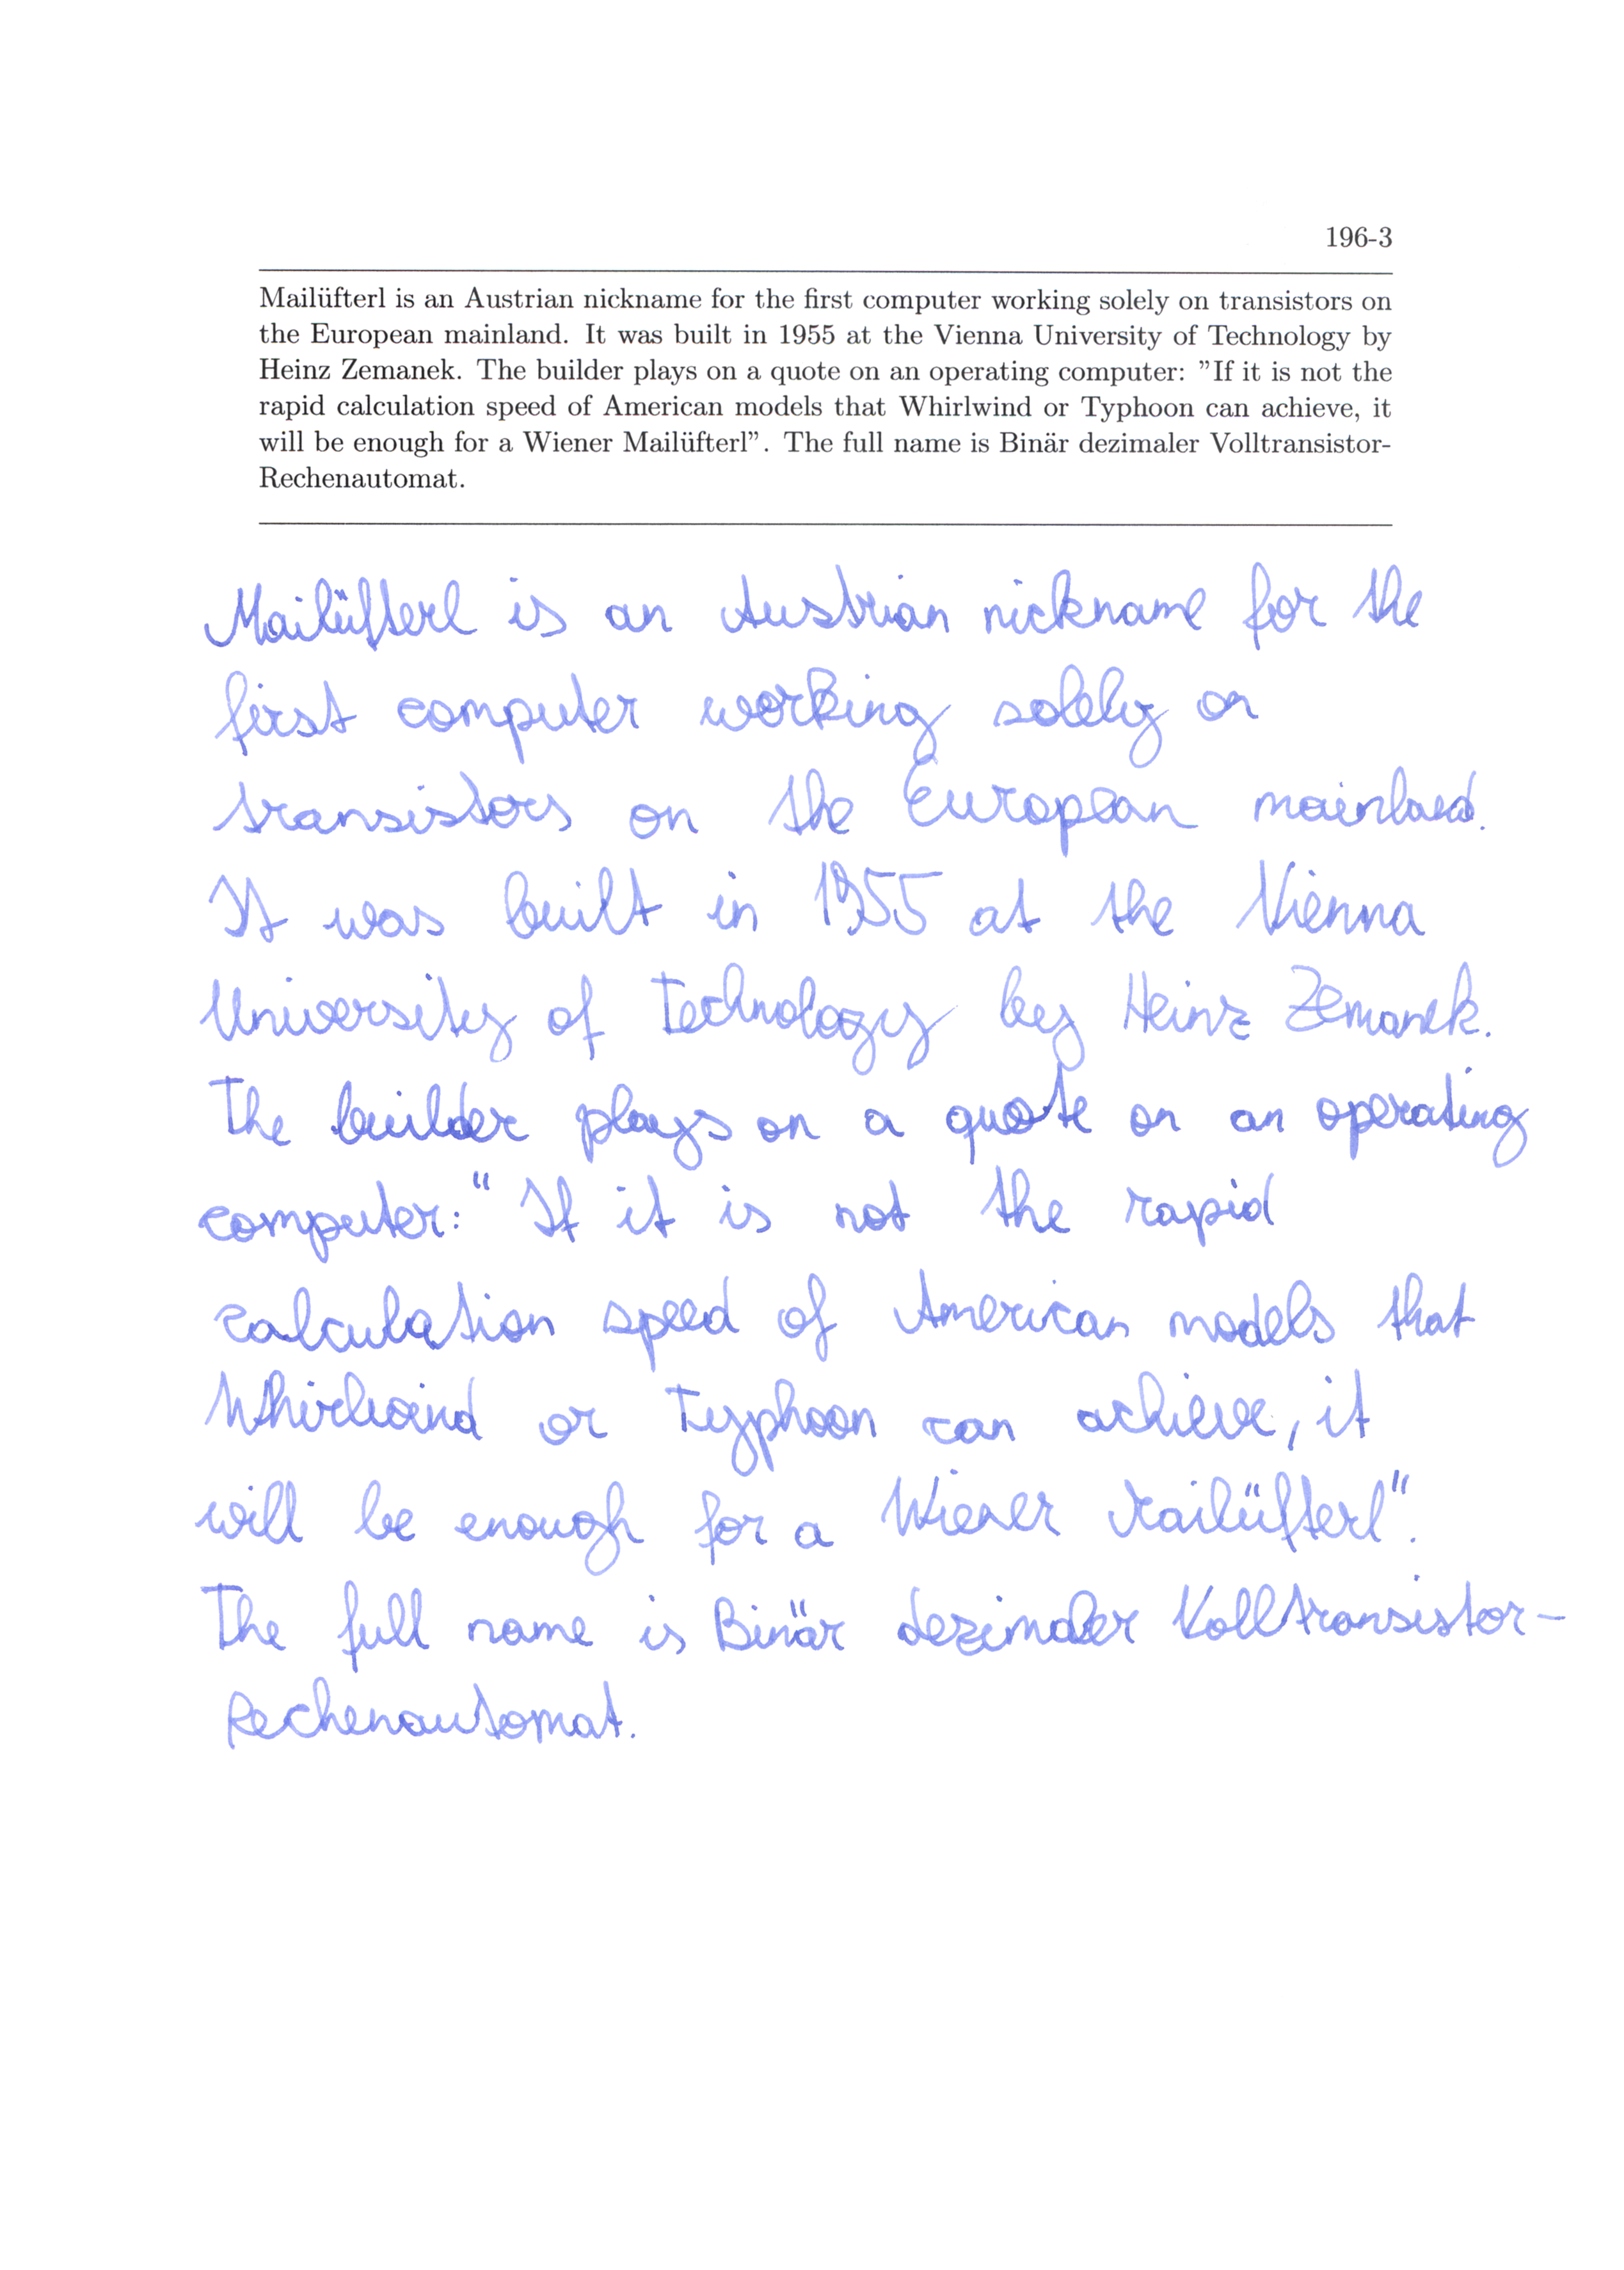 196-3
Mailüfterl is an Austrian nickname for the first computer working solely on transistors on
the European mainland. It was built in 1955 at the Vienna University of Technology by
Heinz Zemanek. The builder plays on a quote on an operating computer: ”If it is not the
rapid calculation speed of American models that Whirlwind or Typhoon can achieve, it
will be enough for a Wiener Mailüfterl”. The full name is Binär dezimaler Volltransistor-
Rechenautomat.
Mailüfterl is an Austrian nickname for the
first computer working solely on
transistors on the European mainland.
It was built in 1955 at the Vienna
University of Technology by Heinz Zemanek.
The builder plays on a quote on an operating
computer: "If it is not the rapid
calculation speed of American models that
Whirlwind or Typhoon can achieve, it
will be enough for a Wiener Mailüfterl".
The full name is Binär dezimaler Volltransistor-
Rechenautomat.